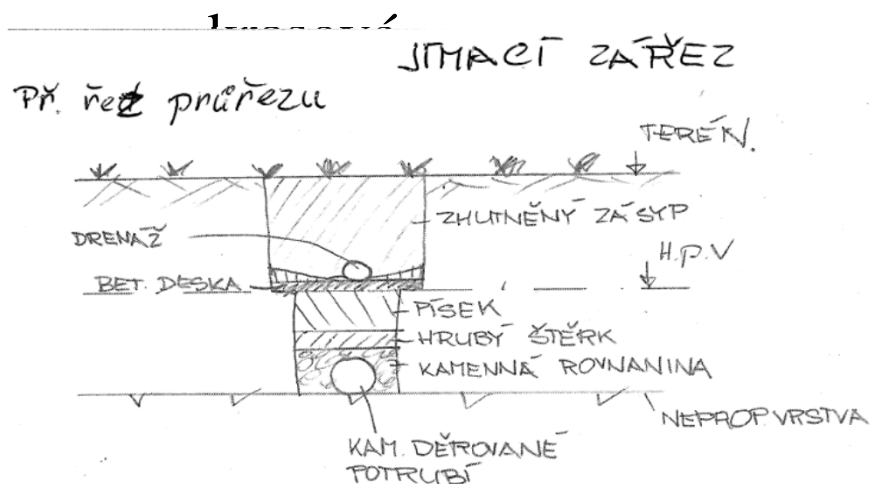 JÍMACÍ ZÁŘEZ
Př. řez průřezu
TERÉN.
ZHUTNĚNÝ ZÁSYP
DRENÁŽ
H.P.V
BET. DESKA
PÍSEK
HRUBÝ ŠTĚRK
KAMENNÁ ROVNANINA
NEPROP. VRSTVA
KAM. DĚROVANÉ
POTRUBÍ